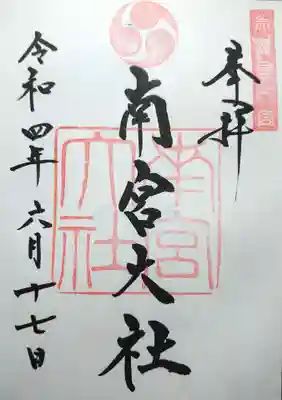 奉拝
南宮大社
令和四年六月十七日
南宮大社